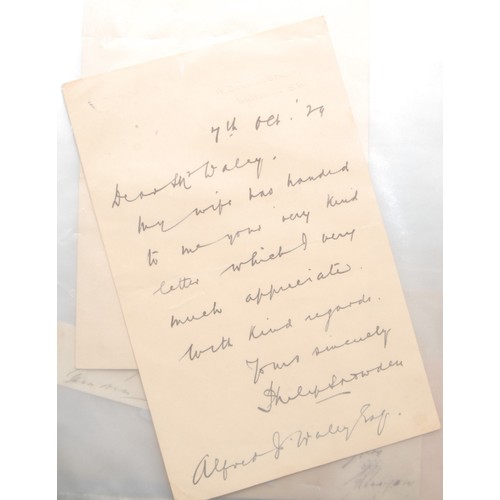 7th Oct. '29
Dear Mr Waley.
My wife has handed
to me your very kind
letter which I very
much appreciate.
With kind regards.
Yours sincerely
Philip Snowden
Alfred J. Waley Esq.